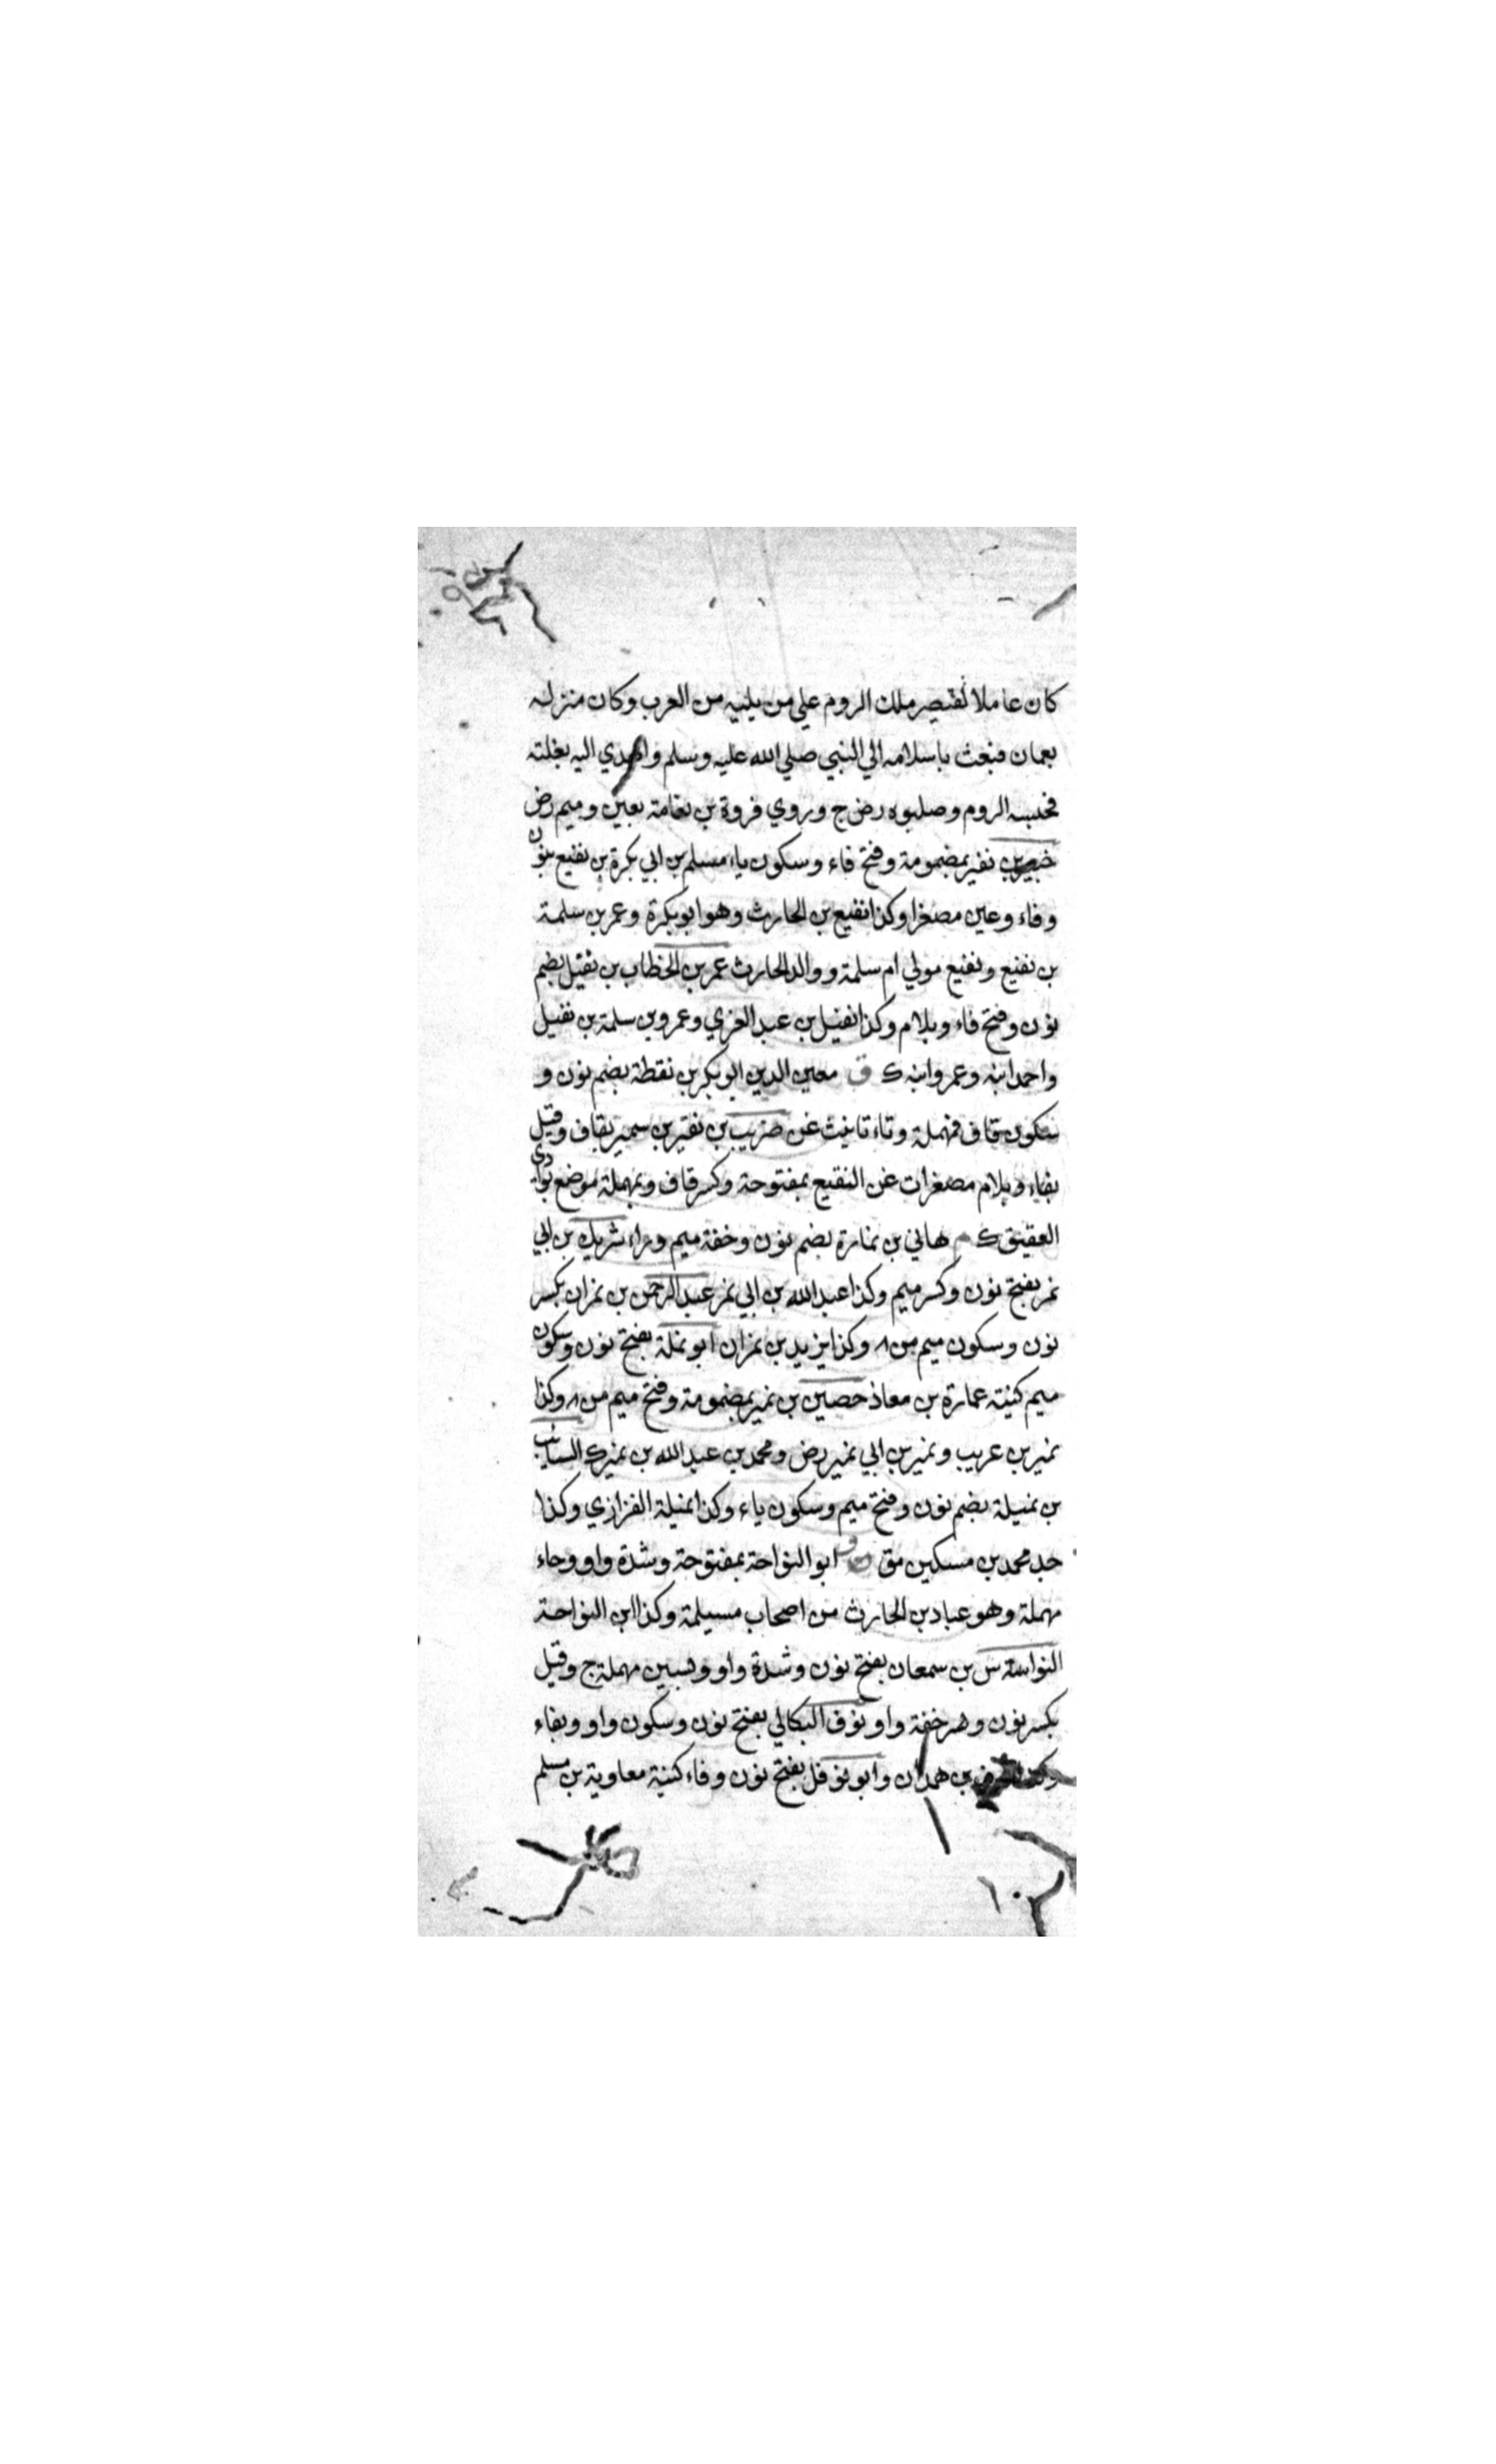 كان عاملا لقيصر ملك الروم علي من يليه من العرب وكان منزله
بعمان فبعث باسلامه الي النبي صلي الله عليه وسلم واهدي اليه بغلته
فحبسه الروم وصلبوه رض ج وروي فروة بن نعامة بعين وميم رض
بن نفير بمضمومة وفتح فاء وسكون ياء مسلم بن ابي بكرة بن نفيع بنون
وفاء وعين مصغرا وكذا نفيع بن الحارث وهو ابو بكرة وعمر بن سلمة
بن نفيع ونفيع مولي ام سلمة ووالد الحارث عمر بن الخطاب بن نفيل بضم
نون وفتح فاء وبلام وكذا نفيل بن عبد العزي وعمرو بن سلمة بن نفيل
واحمد ابنه وعمرو ابنه ك ق معين الدين ابو بكر بن نقطة بضم نون و
سكون قاف فمهملة وتاء تانيث غن ضريب بن نقير بن سمير بقاف وقيل
بفاء وبلام مصغرات غن النقيع بمفتوحة وكسر قاف وبمهملة موضع بوادي
العقيق ك م هاني بن نمارة بضم نون وخفة ميم وراء شريك بن ابي
نمر بفتح نون وكسر ميم وكذا عبد الله بن ابي نمر عبد الرحمن بن نمران بكسر
نون وسكون ميم من ٨ وكذا يزيد بن نمران ابو نملة بفتح نون وسكون
ميم كنية عمارة بن معاذ حصين بن نمير بمضمومة وفتح ميم من ٨ وكذا
نمير بن عريب ونمير بن ابي نمير رض ومحمد بن عبد الله بن نمير ك السايب
بن نميلة بضم نون وفتح ميم وسكون ياء وكذا نميلة الفزازي وكذا
جد محمد بن مسكين مق ابو النواحة بمفتوحة وشدة واو وحاء
مهملة وهو عباد بن الحارث من اصحاب مسيلمة وكذا ابن النواحة
بن سمعان بفتح نون وشدة واو وبسين مهملة ج وقيل
بكسر نون وهر خفة واو نوف البكالي بفتح نون وسكون واو وبفاء
بن همدان وابو نوفل بفتح نون وفاء كنية معاوية بن مسلم